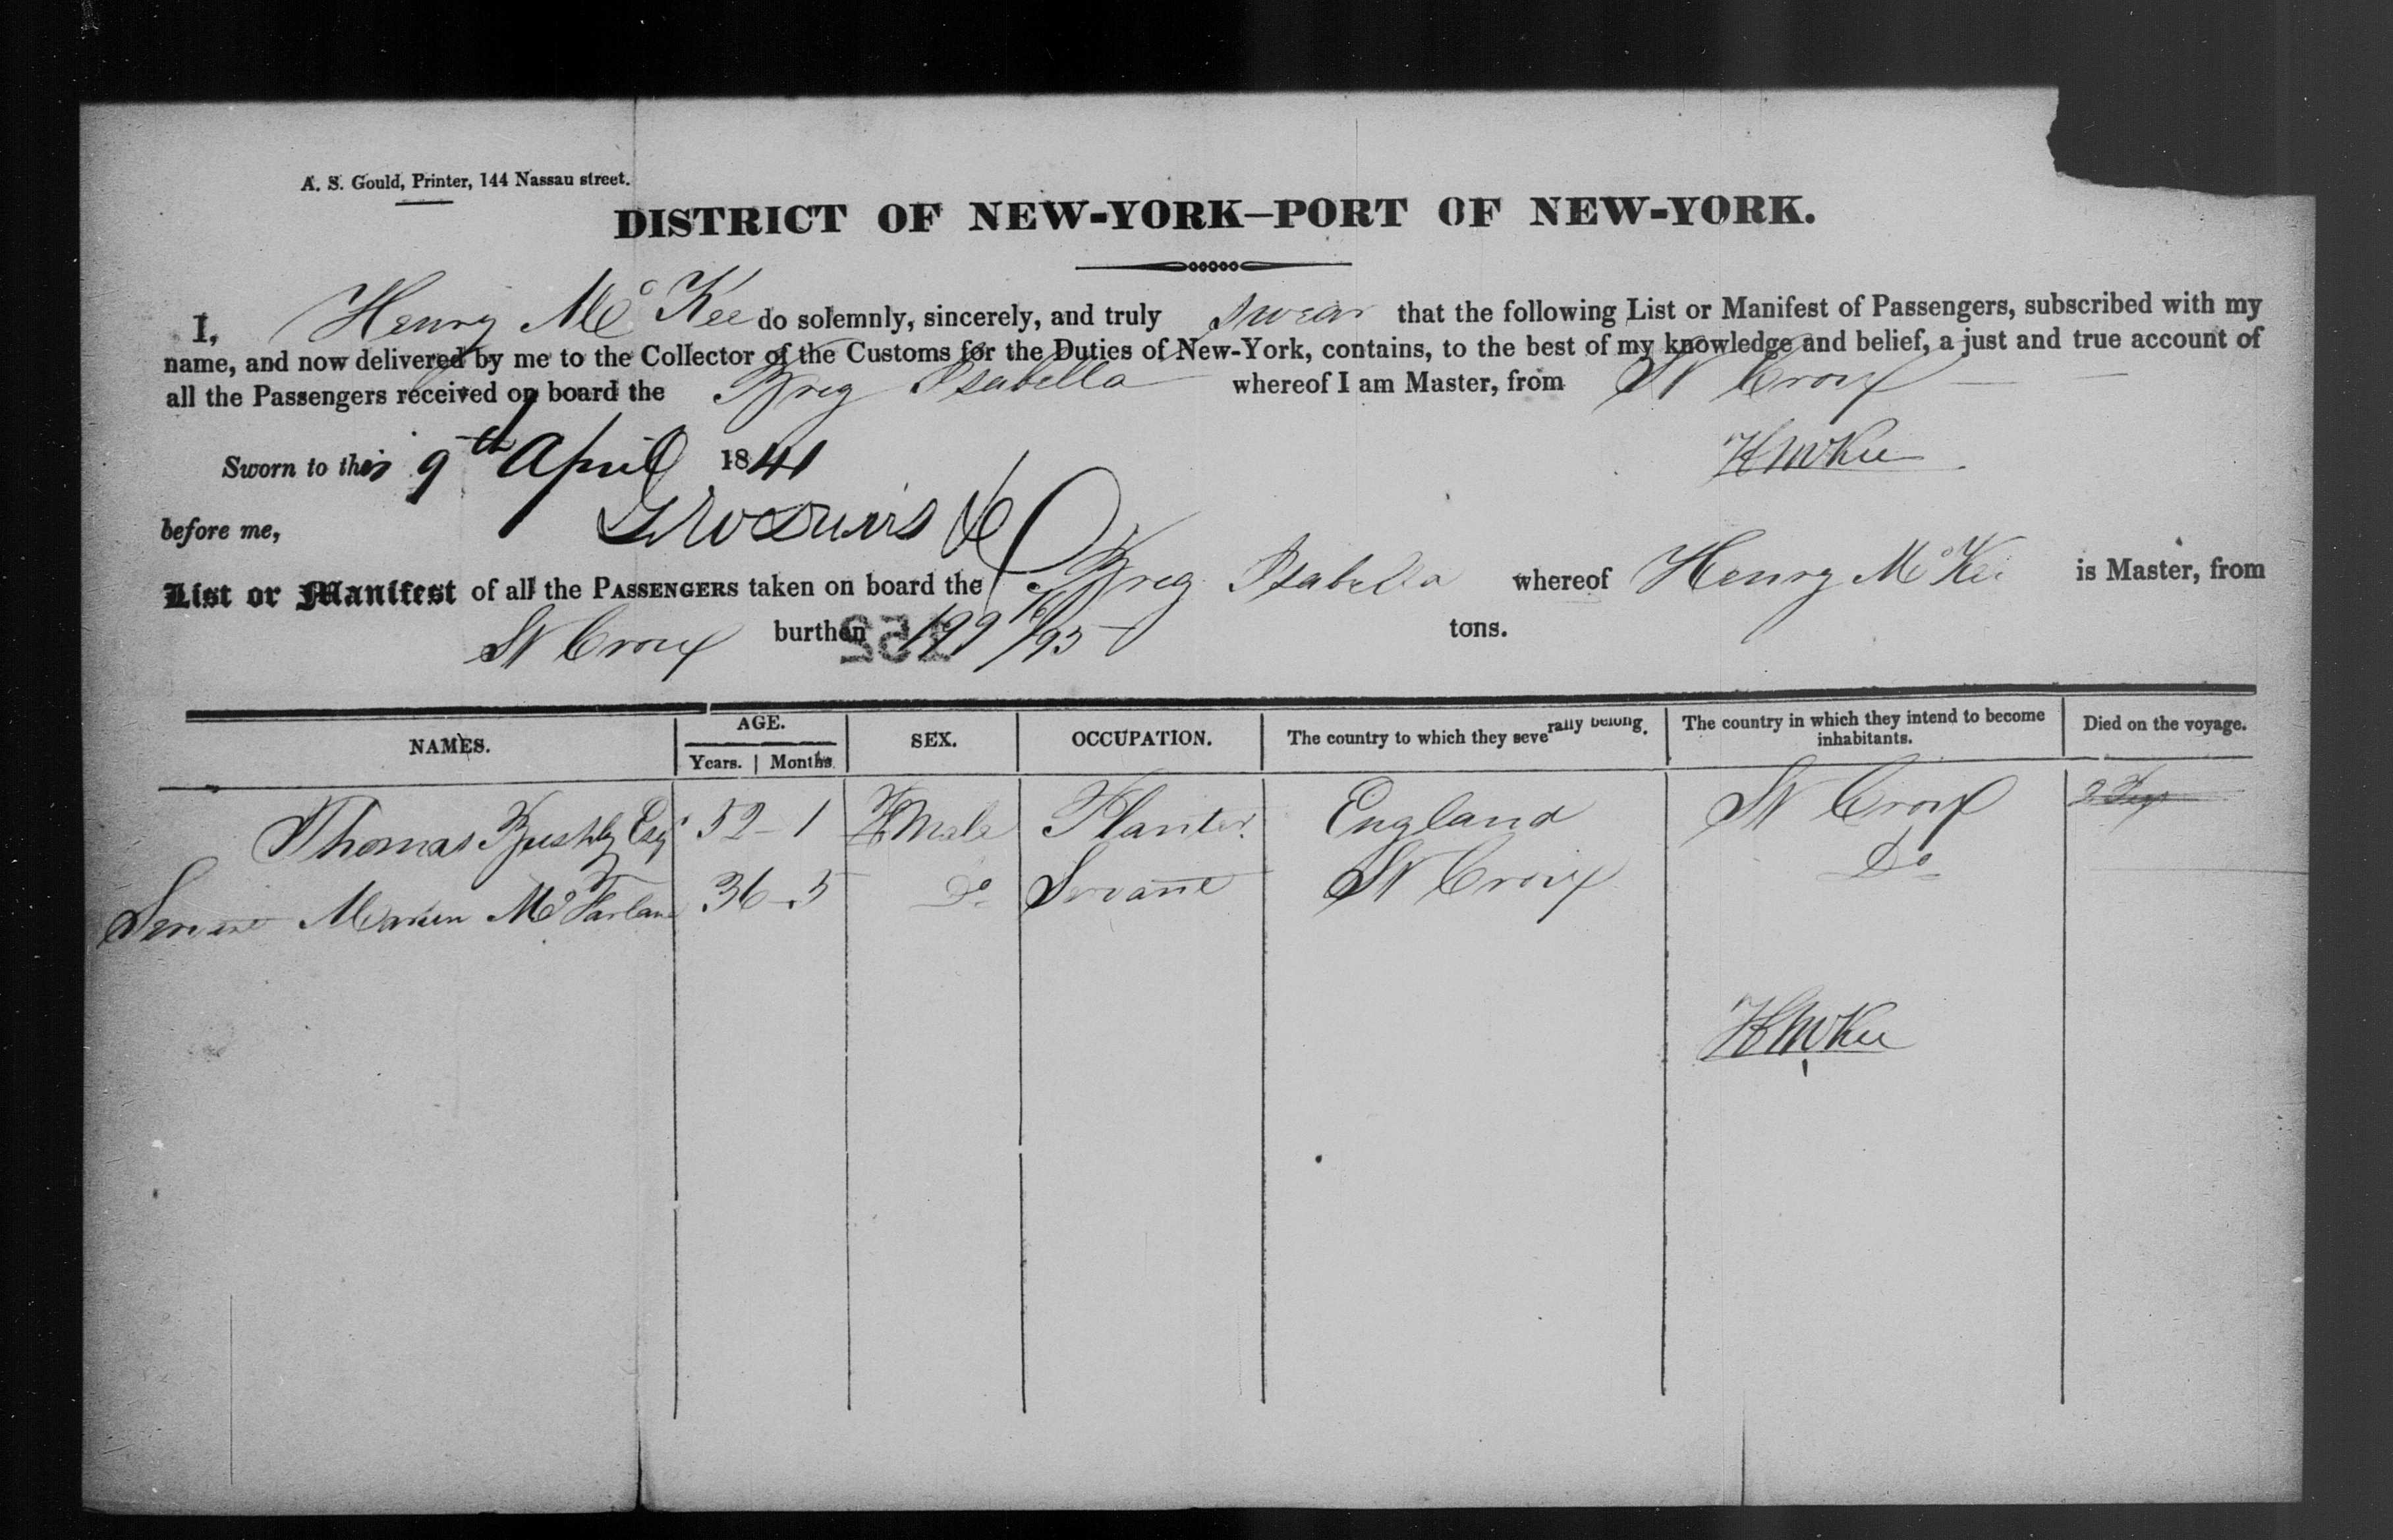 A. S. Gould, Printer, 144 Nassau street.
DISTRICT OF NEW-YORK—PORT OF NEW-YORK.
I, Henry McKee do solemnly, sincerely, and truly swear that the following List or Manifest of Passengers, subscribed with my
name, and now delivered by me to the Collector of the Customs for the Duties of New-York, contains, to the best of my knowledge and belief, a just and true account of
all the Passengers received on board the Brig Isabella whereof I am Master, from St Croix
Sworn to this 9th April 1841
H McKee
before me,
List or Manifest of all the PASSENGERS taken on board the Brig Isabella whereof Henry McKee is Master, from
St Croix burthen 199 16/95 tons.
NAMES. AGE. Years. Months. SEX. OCCUPATION. The country to which they severally belong. The country in which they intend to become inhabitants. Died on the voyage.
Thomas Bushby Esqr 52 - 1 Male Planter England St Croix
Servant McFarlane 36 - 5 Do Servant St Croix Do
H McKee